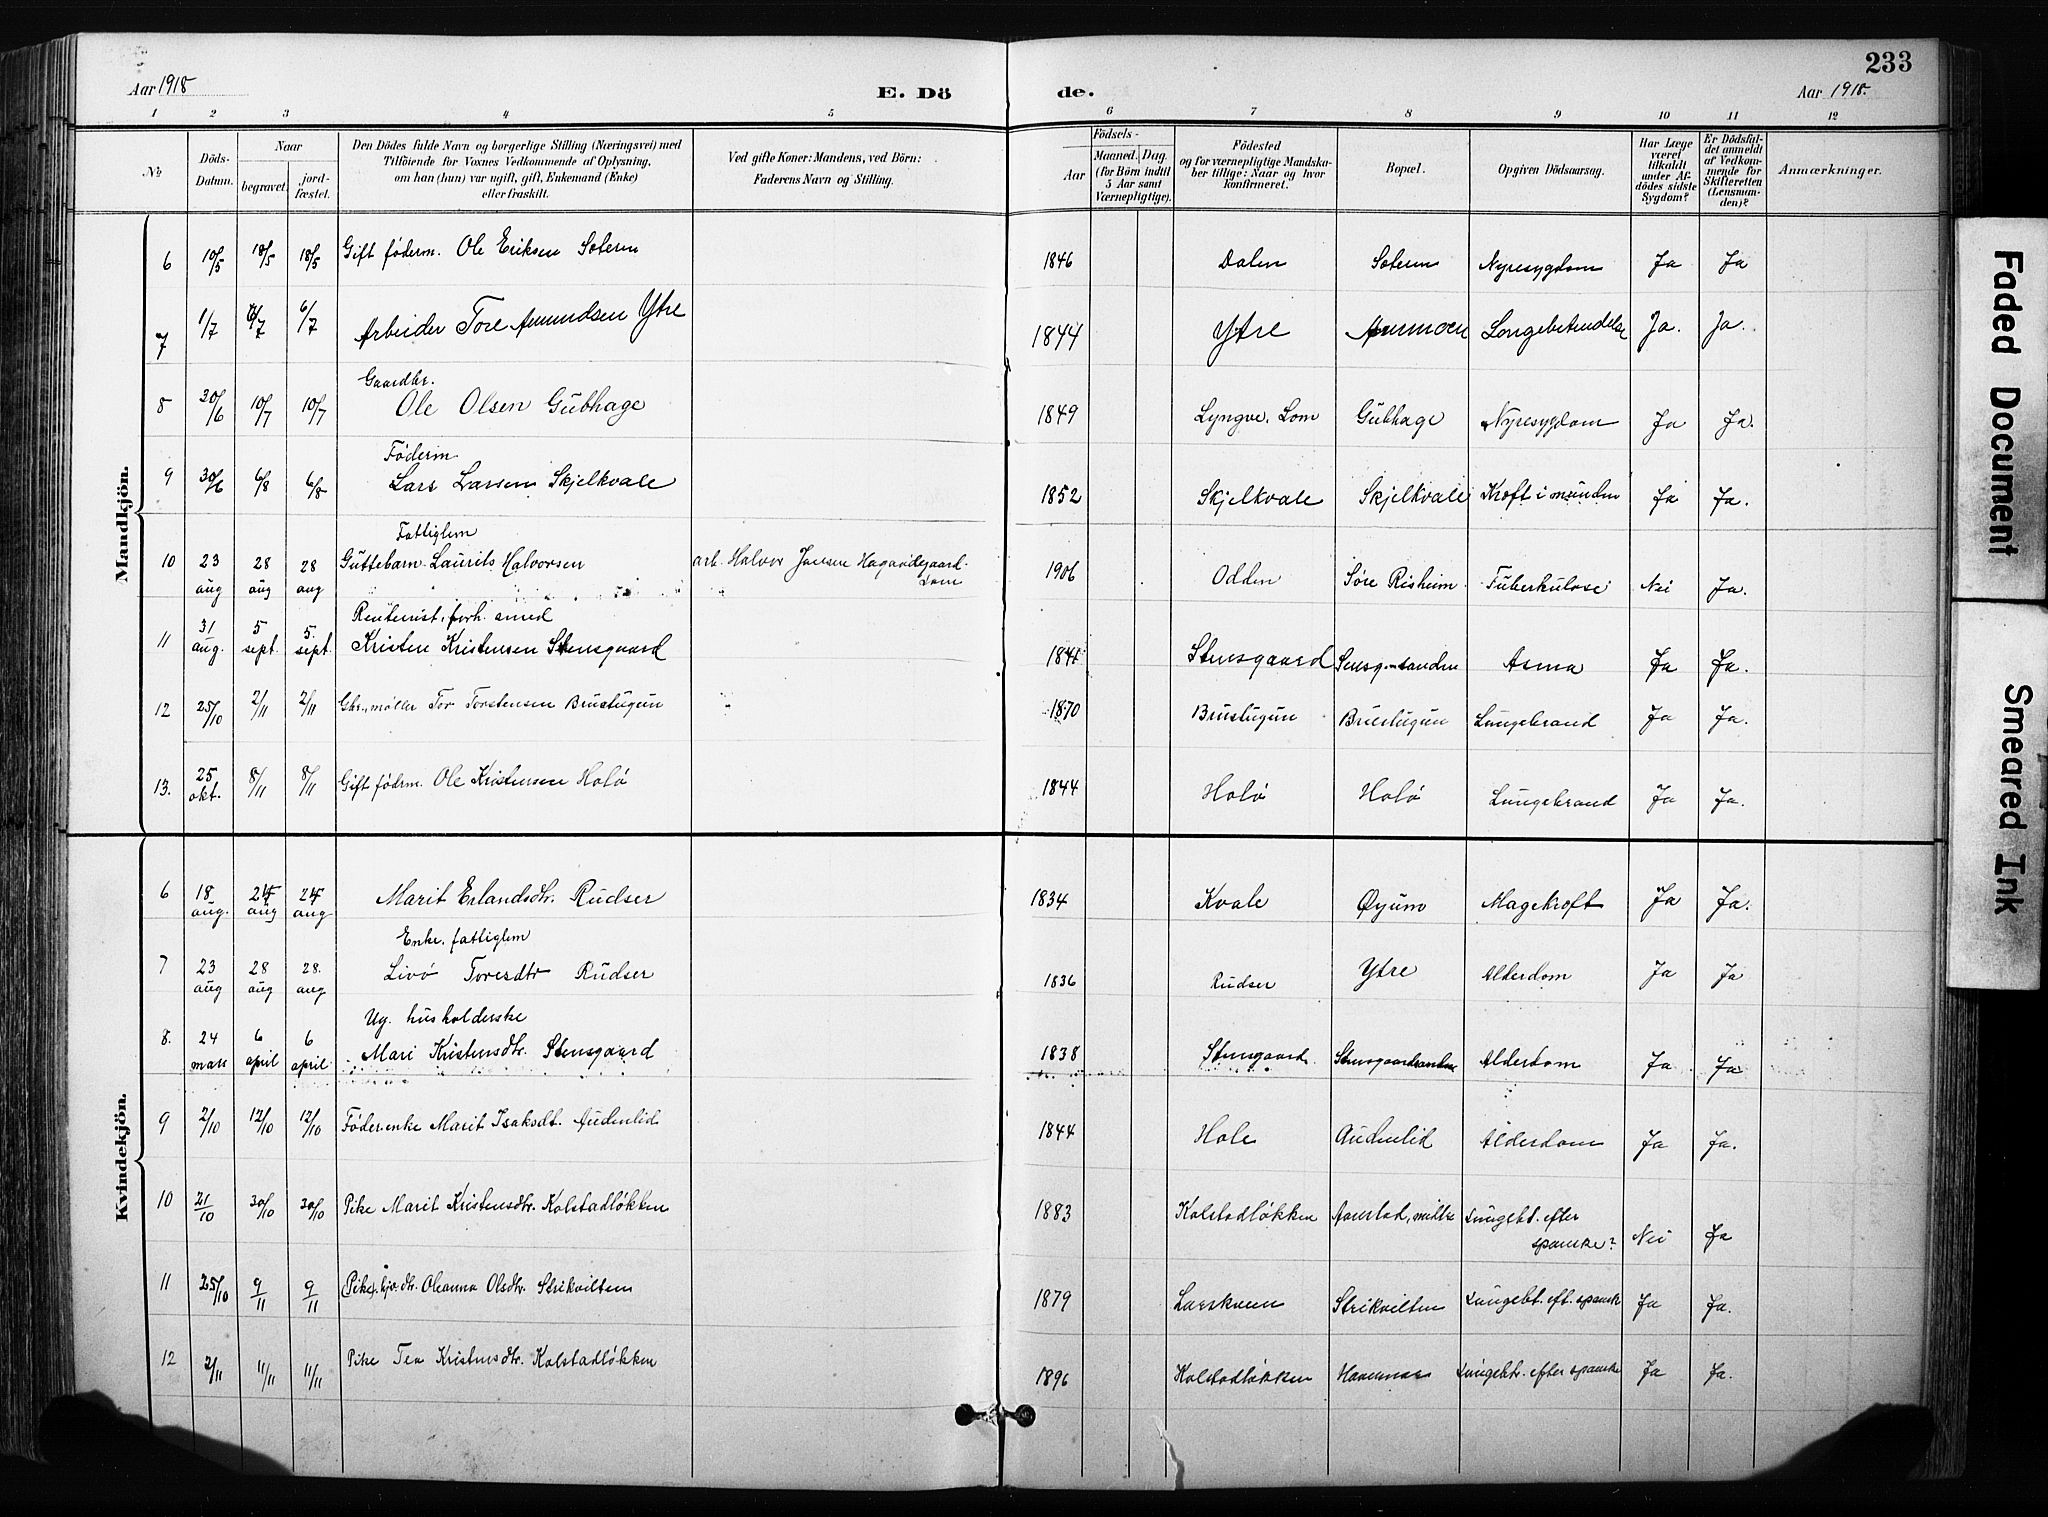 233
Aar 1918
E. Dö
de.
Aar 1918.
1 2 3 4 5 6 7 8 9 10 11 12
No
Döds-Datum.
Naar
begravet.
jord-fæstet.
Den Dödes fulde Navn og borgerlige Stilling (Næringsvei) med
Tilföiende for Voxnes Vedkommende af Oplysning,
om han (hun) var ugift, gift, Enkemand (Enke)
eller fraskilt.
Ved gifte Koner: Mandens, ved Börn:
Faderens Navn og Stilling.
Födsels-
Aar
Maaned. Dag.
(for Börn indtil
5 Aar samt
Værnepligtige).
Födested
og for værnepligtige Mandska-
ber tillige: Naar og hvor
konfirmeret.
Bopæl.
Opgiven Dödsaarsag.
Har Læge
været
tilkaldt
under Af-
dödes sidste
Sygdom?
Er Dödsfal-
det anmeldt
af Vedkom-
mende for
Skifteretten
(Lensman-
den)?
Anmærkninger.
Mandkjön.
6 10/5 18/5 18/5 Gift føderm. Ole Eriksen Soterm 1846 Dalen Soterm Nyresygdom Ja Ja
7 1/7 6/7 6/7 Arbeider Tore Amundsen Ytre 1844 Ytre Longebetendelse Ja. Ja.
Gaardbr.
8 30/6 10/7 10/7 Ole Olsen Gubhage 1849 Lyngve. Lom Gubhage Nyresygdom Ja Ja.
Føderm.
9 30/6 6/8 6/8 Lars Larsen Skjelkvale 1852 Skjelkvale Skjelkvale Kræft i munden Ja Ja.
Fattiglem
10 23 aug 28 aug 28 aug Guttebarn Laurits Halvorsen arb. Halvor Jansen 1906 Odden Søre Risheim Tuberkulose Nei Ja.
Lom
Rentenist, forh. smed
11 31 aug. 5 sept. 5. sept. Kristen Kristensen Stensgaard 1841 Stensgaard Asma Ja Ja.
12 25/10 2/11 2/11 Gbr., møller Tor Torstensen Brustugun 1870 Brustugun Brustugun Lungebrand Ja Ja.
13. 25 okt. 8/11 8/11 Gift føderm. Ole Kristensen Holø 1844 Holø Holø Lungebrand Ja Ja.
Kvindekjön.
6 18 aug. 24 aug 24 aug Marit Erlandsdtr. Rudser 1834 Kvale Øyum Magekræft Ja Ja.
Enke. fattiglem
7 23 aug 28 aug 28. aug Livø Toresdtr Rudser 1836 Rudser Ytre Alderdom Ja Ja
Ug. husholderske
8. 24 mars 6 april 6 april Mari Kristensdtr. Stensgaard 1838 Stensgaard Stensgaardsanden Alderdom Ja Ja
9 2/10 12/10 12/10 Føder.enke Marit Isaksdt. Audenlid 1844 Hole Audenlid Alderdom Ja Ja.
10 21/10 30/10 30/10 Pike Marit Kristensdtr. Kolstadløkken 1883 Kolstadløkken Aanstad, midtre Lungebt. efter
spanske? Nei Ja
11 25/10 9/11 9/11 Pike, Oleanna Olsdtr. Strikvilten 1879 Strikvilten Lungebt. eft. spanske Ja Ja.
12 2/11 11/11 11/11 Pike Tea Kristensdtr. Kolstadløkken 1896 Kolstadløkken Lungebt. efter spanske Ja Ja.
Faded Document
Smeared Ink